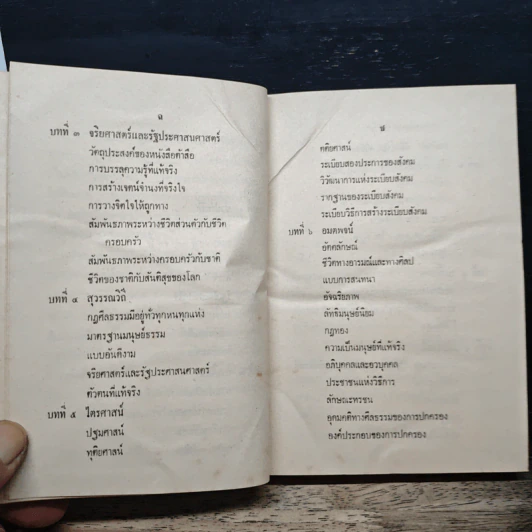 ฉ
บทที่ ๓ จริยศาสตร์และรัฐประศาสนศาสตร์
วัตถุประสงค์ของหนังสือต้าสือ
การบรรลุความรู้ที่แท้จริง
การสร้างเจตน์จำนงที่จริงใจ
การวางจิตใจให้ถูกทาง
สัมพันธภาพระหว่างชีวิตส่วนตัวกับชีวิต
ครอบครัว
สัมพันธภาพระหว่างครอบครัวกับชาติ
ชีวิตของชาติกับสันติสุขของโลก
บทที่ ๔ สุวรรณวิถี
กฎศีลธรรมมีอยู่ทั่วทุกหนทุกแห่ง
มาตรฐานมนุษย์ธรรม
แบบอันดีงาม
จริยศาสตร์และรัฐประศาสนศาสตร์
ตัวคนที่แท้จริง
บทที่ ๕ ไตรศาสน์
ปฐมศาสน์
ทุติยศาสน์
ช
ตติยศาสน์
ระเบียบสองประการของสังคม
วิวัฒนาการแห่งระเบียบสังคม
รากฐานของระเบียบสังคม
ระเบียบวิธีการสร้างระเบียบสังคม
บทที่ ๖ อมตพจน์
อัตลักษณ์
ชีวิตทางอารมณ์และทางศิลป
แบบการสนทนา
อัจฉริยภาพ
ลัทธิมนุษย์นิยม
กฎทอง
ความเป็นมนุษย์ที่แท้จริง
อภิบุคคลและอวบุคคล
ประชาชนแห่งวิธีการ
ลักษณะทรชน
อุดมคติทางศีลธรรมของการปกครอง
องค์ประกอบของการปกครอง